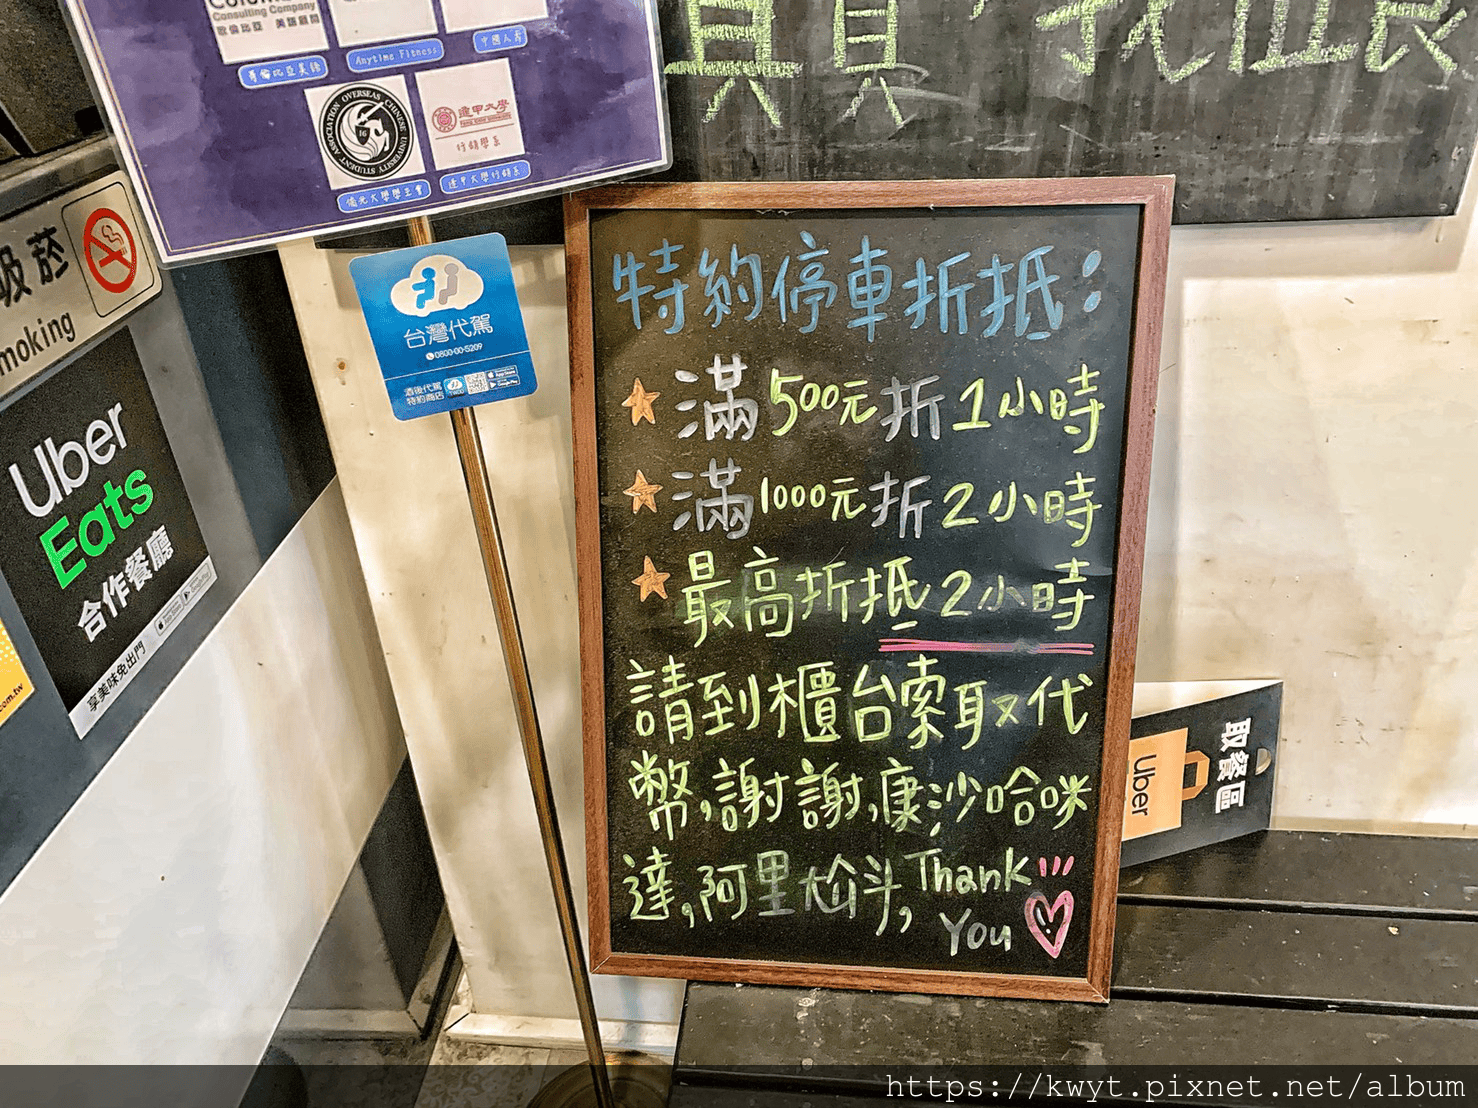 Consulting Company
歌倫比亞 美語顧問
哥倫比亞美語
Anytime Fitness
中國人壽
OVERSEAS CHINESE UNIVERSITY STUDENT ASSOCIATION
逢甲大學
行銷學系
僑光大學學生會
逢甲大學行銷系
吸菸
moking
Uber
Eats
合作餐廳
享美味免出門
com.tw
台灣代駕
0800-00-5209
酒後代駕
特約商店
App Store
Google Play
特約停車折抵:
滿500元折1小時
滿1000元折2小時
最高折抵2小時
請到櫃台索取代
幣,謝謝,康沙哈咪
達,阿里尬斗,Thank
You
取餐區
Uber
https://kwyt.pixnet.net/album